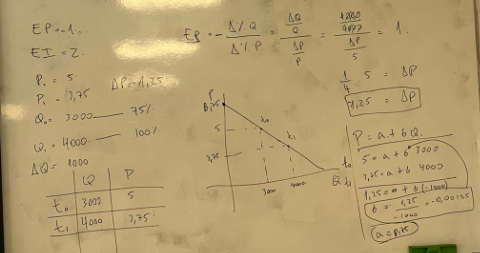 EP=-1.
EI=2.
P₀ = 5
ΔP=-1,25
P₁ = 3,75
Q₀= 3000 75%
Q₁= 4000 100%
ΔQ= 1000
Q P
t₀ 3000 5
t₁ 4000 3,75
EP = - Δ%Q / Δ%P = ΔQ/Q / ΔP/P = / ΔP/5 = 1.
1/4 · 5 = ΔP
1,25 = ΔP
P
8,75
5
3,75
3000 4000
Q
P = a + b Q.
t₀ 5 = a + b 3000
t₁ 3,75 = a + b 4000
1,25 = 0 + b (-1000)
b = 1,25 / -1000 = -0,00125
a = 8,75